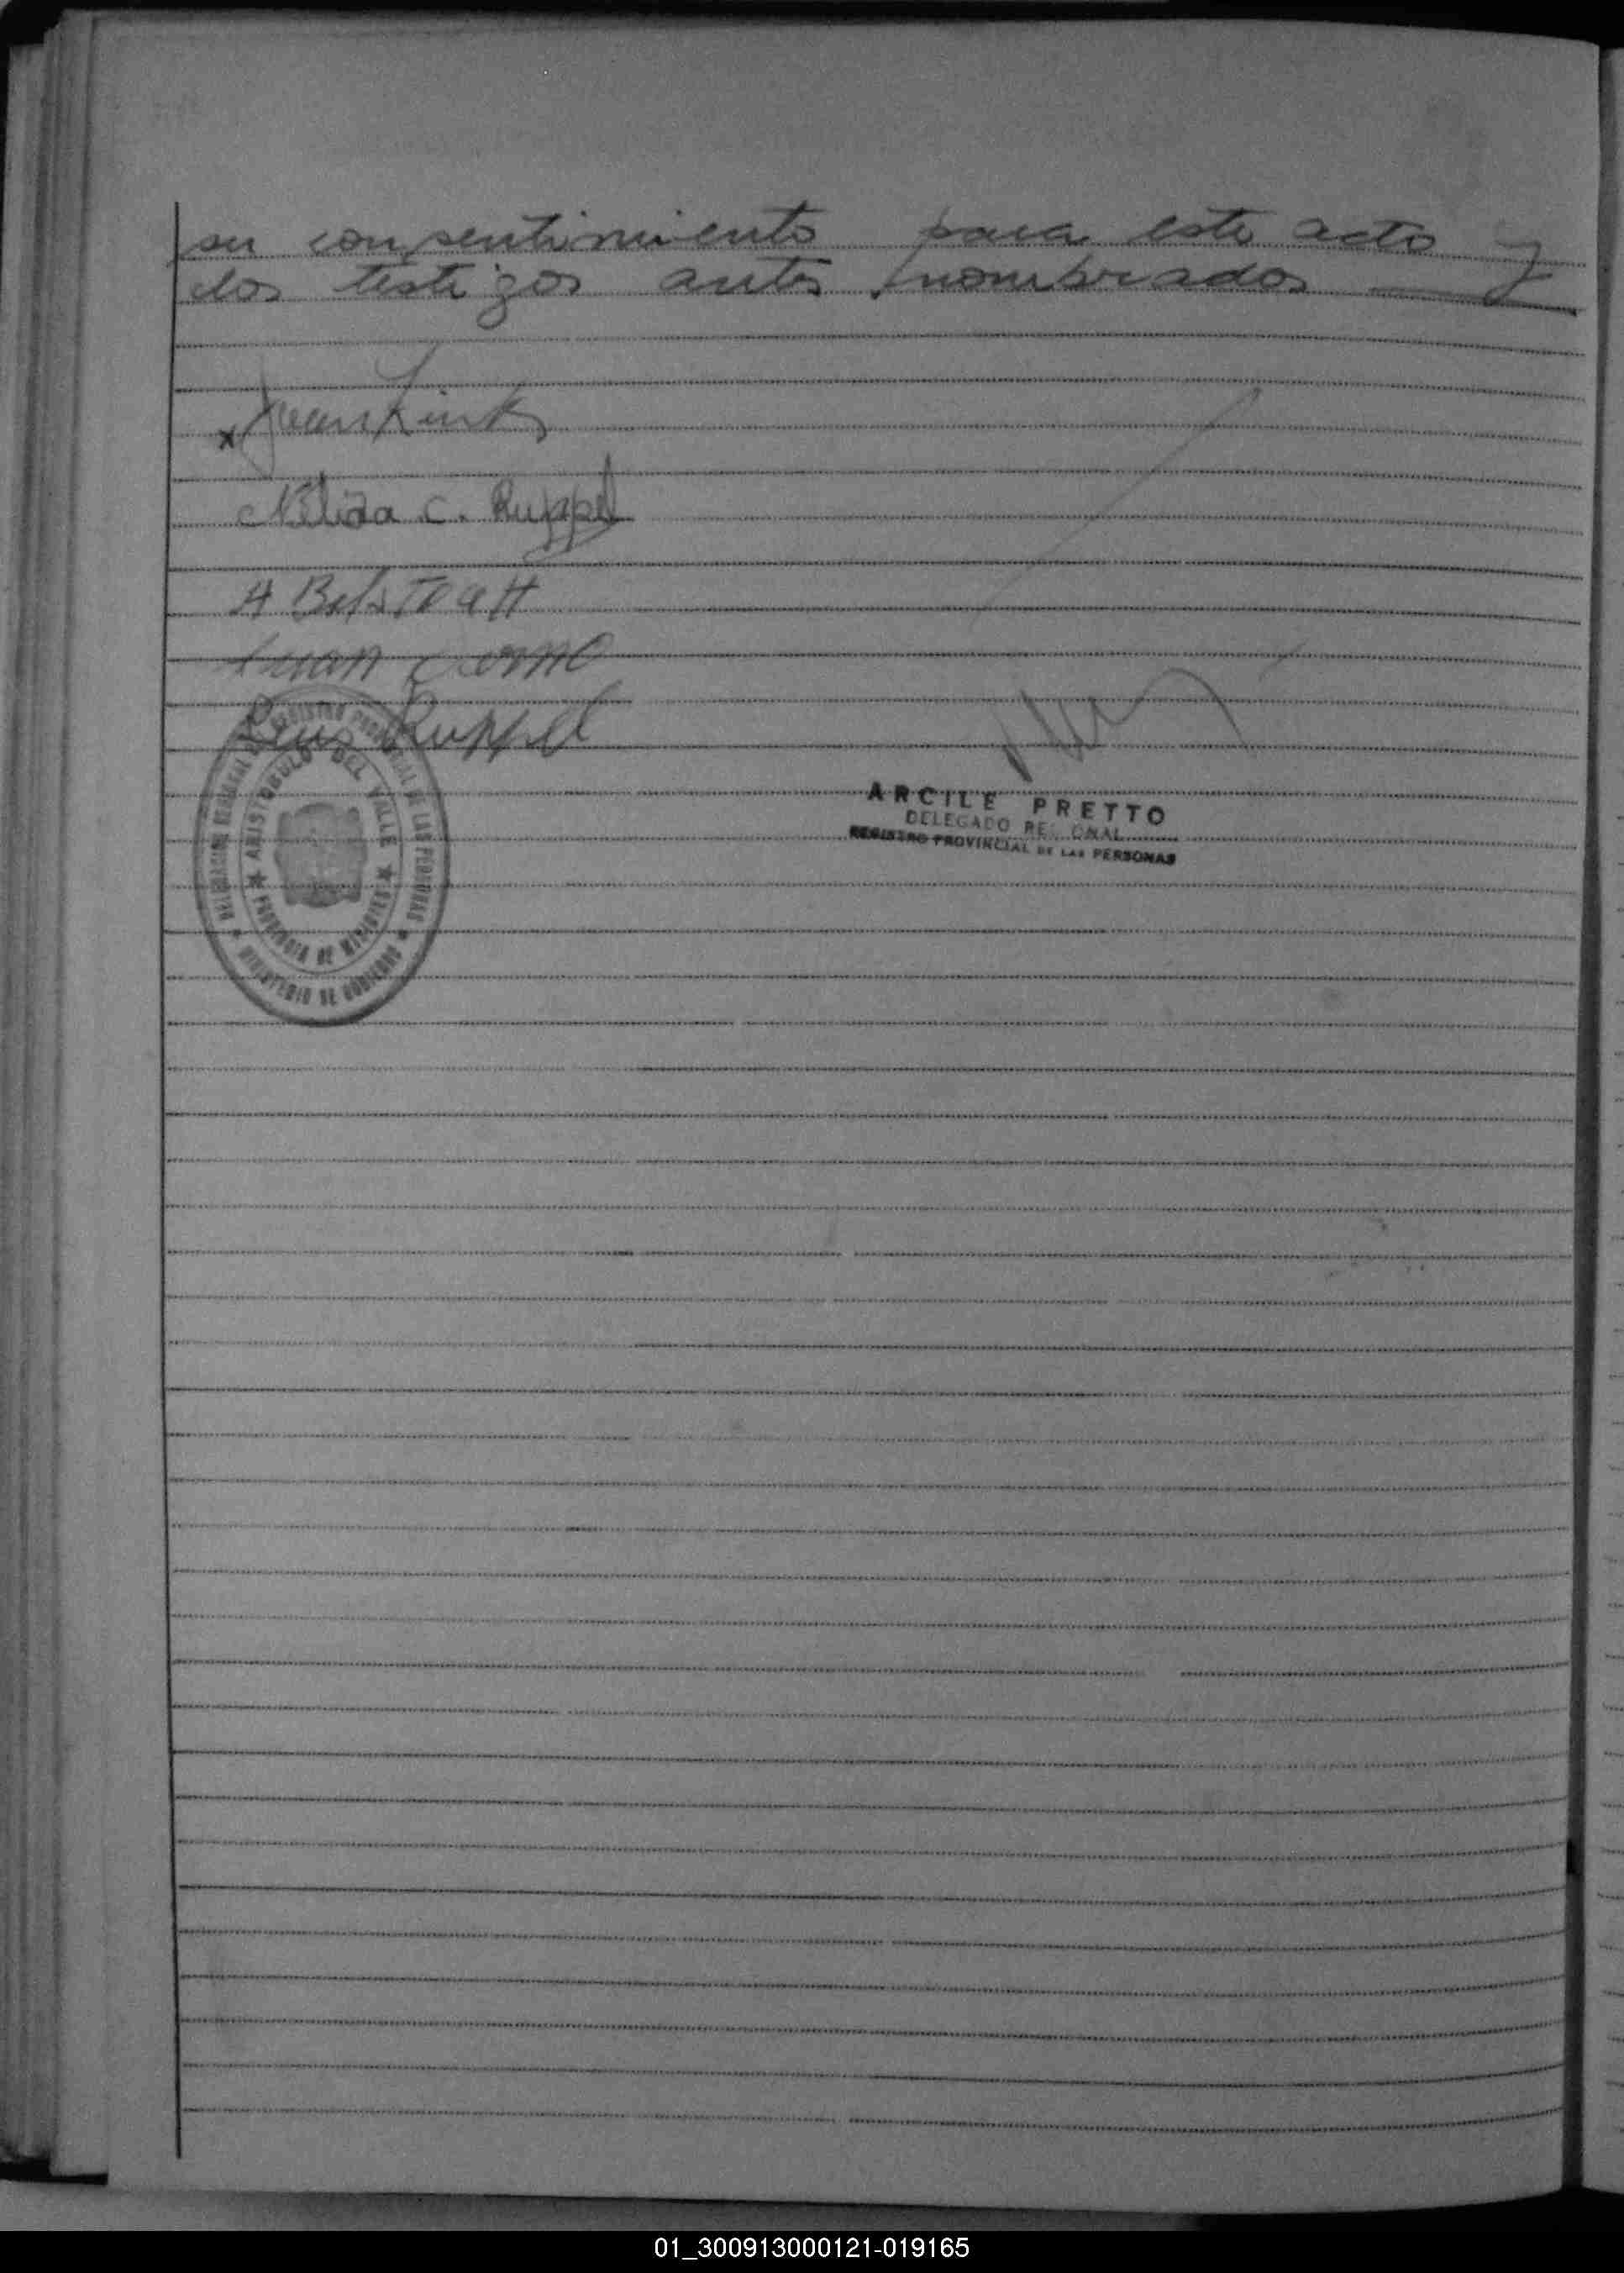 su consentimiento para este acto y
los testigos antes nombrados
x Juan Link
Nélida C. Ruppel
A
Juan
Ruppel
DELEGACION REGIONAL REGISTRO PROVINCIAL DE LAS PERSONAS
ARISTOBULO DEL VALLE
★ PROVINCIA DE MISIONES ★
MINISTERIO DE GOBIERNO
ARCILE PRETTO
DELEGADO REGIONAL
REGISTRO PROVINCIAL DE LAS PERSONAS
01_300913000121-019165